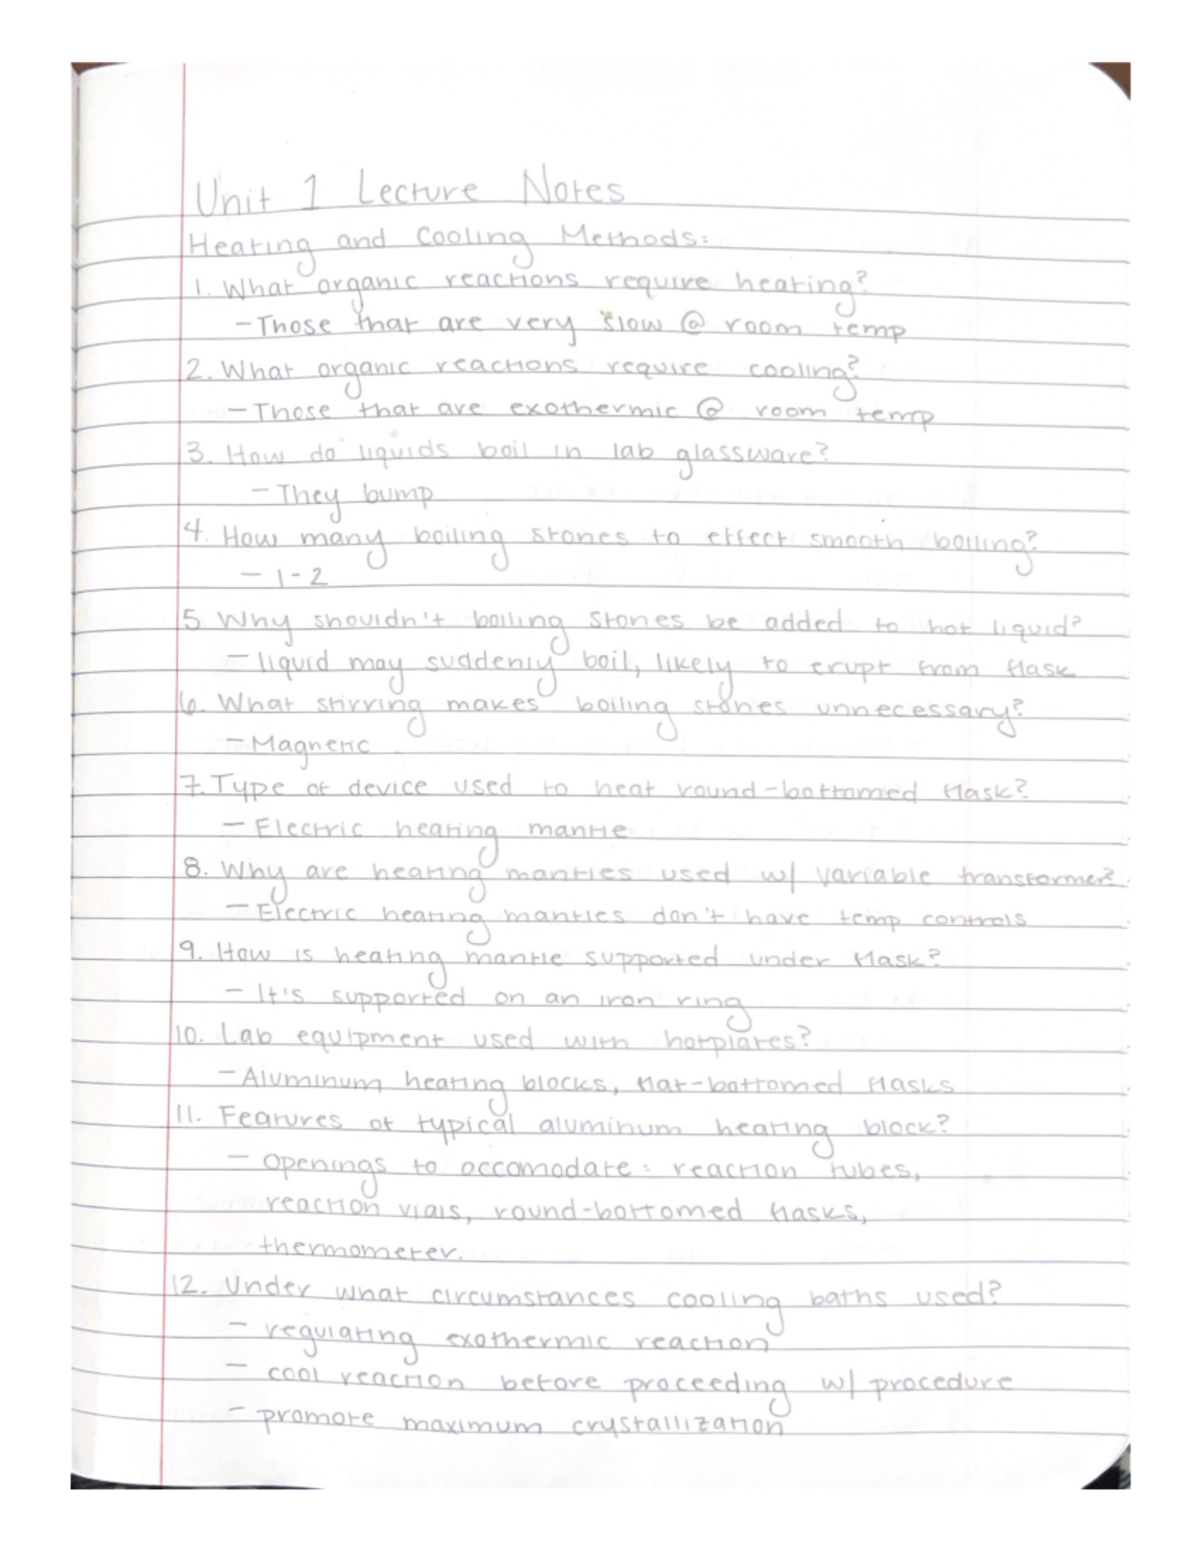 Unit 1 Lecture Notes
Heating and Cooling Methods:
1. What organic reactions require heating?
- Those that are very slow @ room temp
2. What organic reactions require cooling?
- Those that are exothermic @ room temp
3. How do liquids boil in lab glassware?
- They bump
4. How many boiling stones to effect smooth boiling?
- 1-2
5 Why shouldn't boiling stones be added to hot liquid?
- liquid may suddenly boil, likely to erupt from flask
6. What stirring makes boiling stones unnecessary?
- Magnetic
7. Type of device used to heat round-bottomed flask?
- Electric heating mantle
8. Why are heating mantles used w/ variable transformer?
- Electric heating mantles don't have temp controls
9. How is heating mantle supported under flask?
- It's supported on an iron ring
10. Lab equipment used with hotplates?
- Aluminum heating blocks, flat-bottomed flasks
11. Features of typical aluminum heating block?
- Openings to accomodate: reaction tubes,
reaction vials, round-bottomed flasks,
thermometer.
12. Under what circumstances cooling baths used?
- regulating exothermic reaction
- cool reaction before proceeding w/ procedure
- promote maximum crystallization